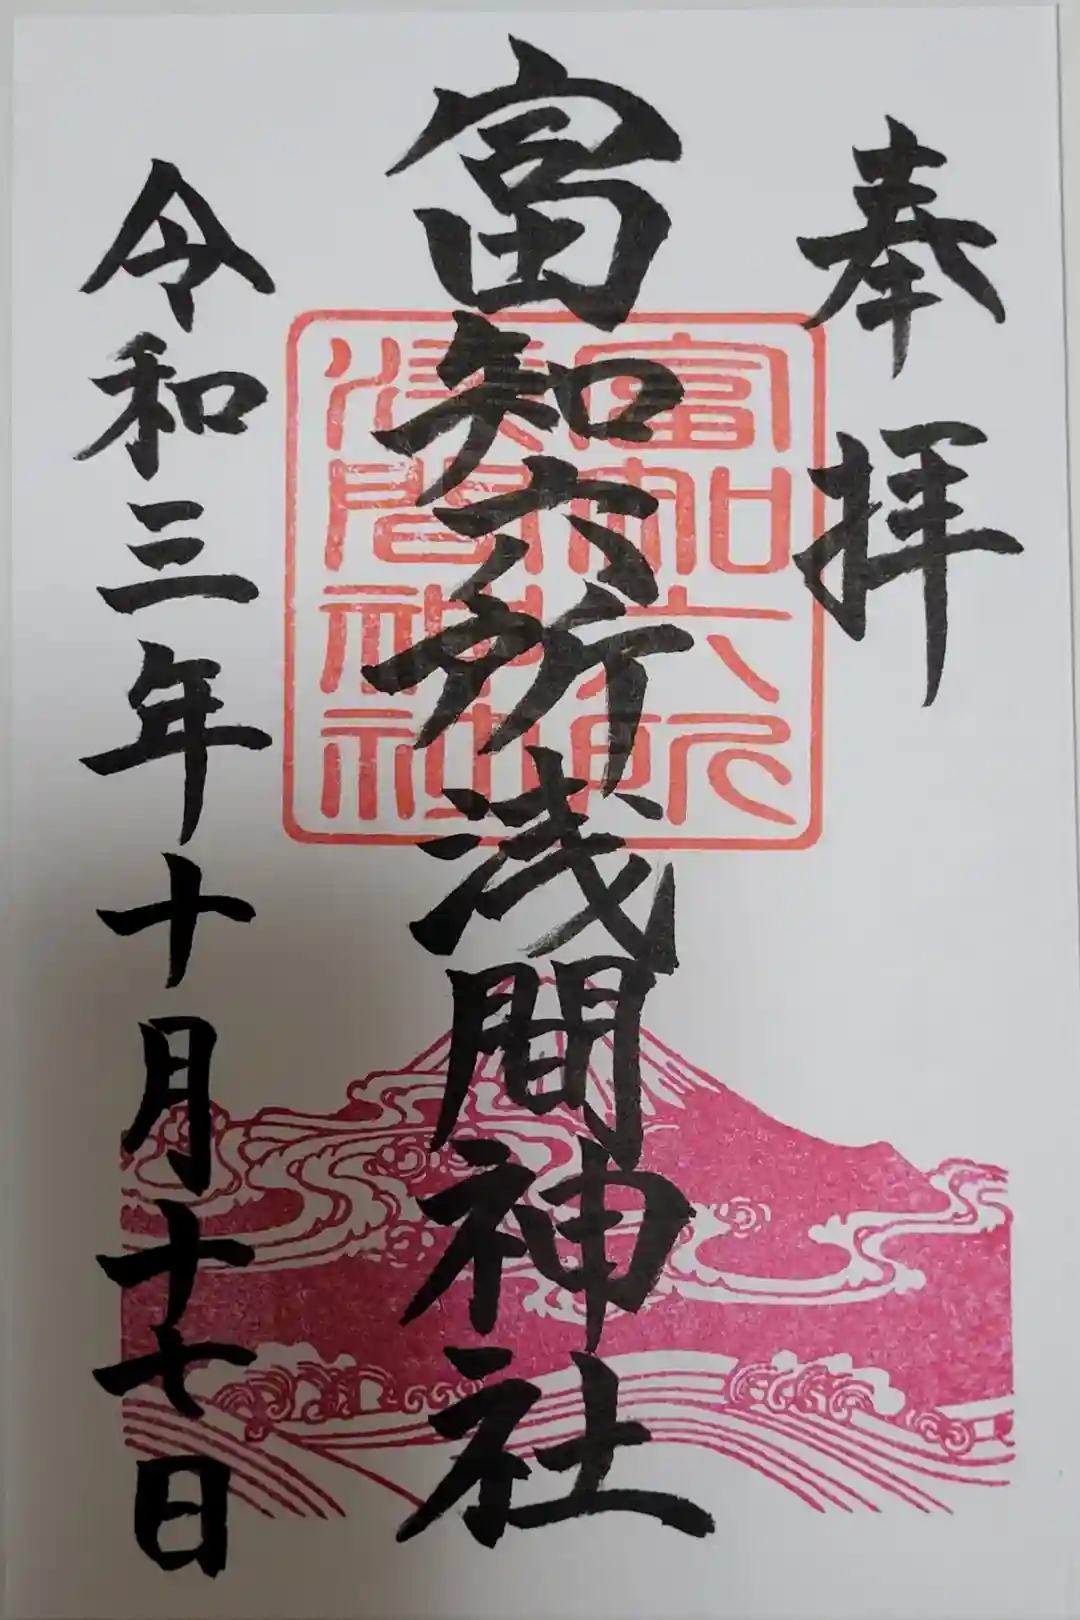 奉拝
富知六所浅間神社
令和三年十月十七日
富知六所
浅間神社